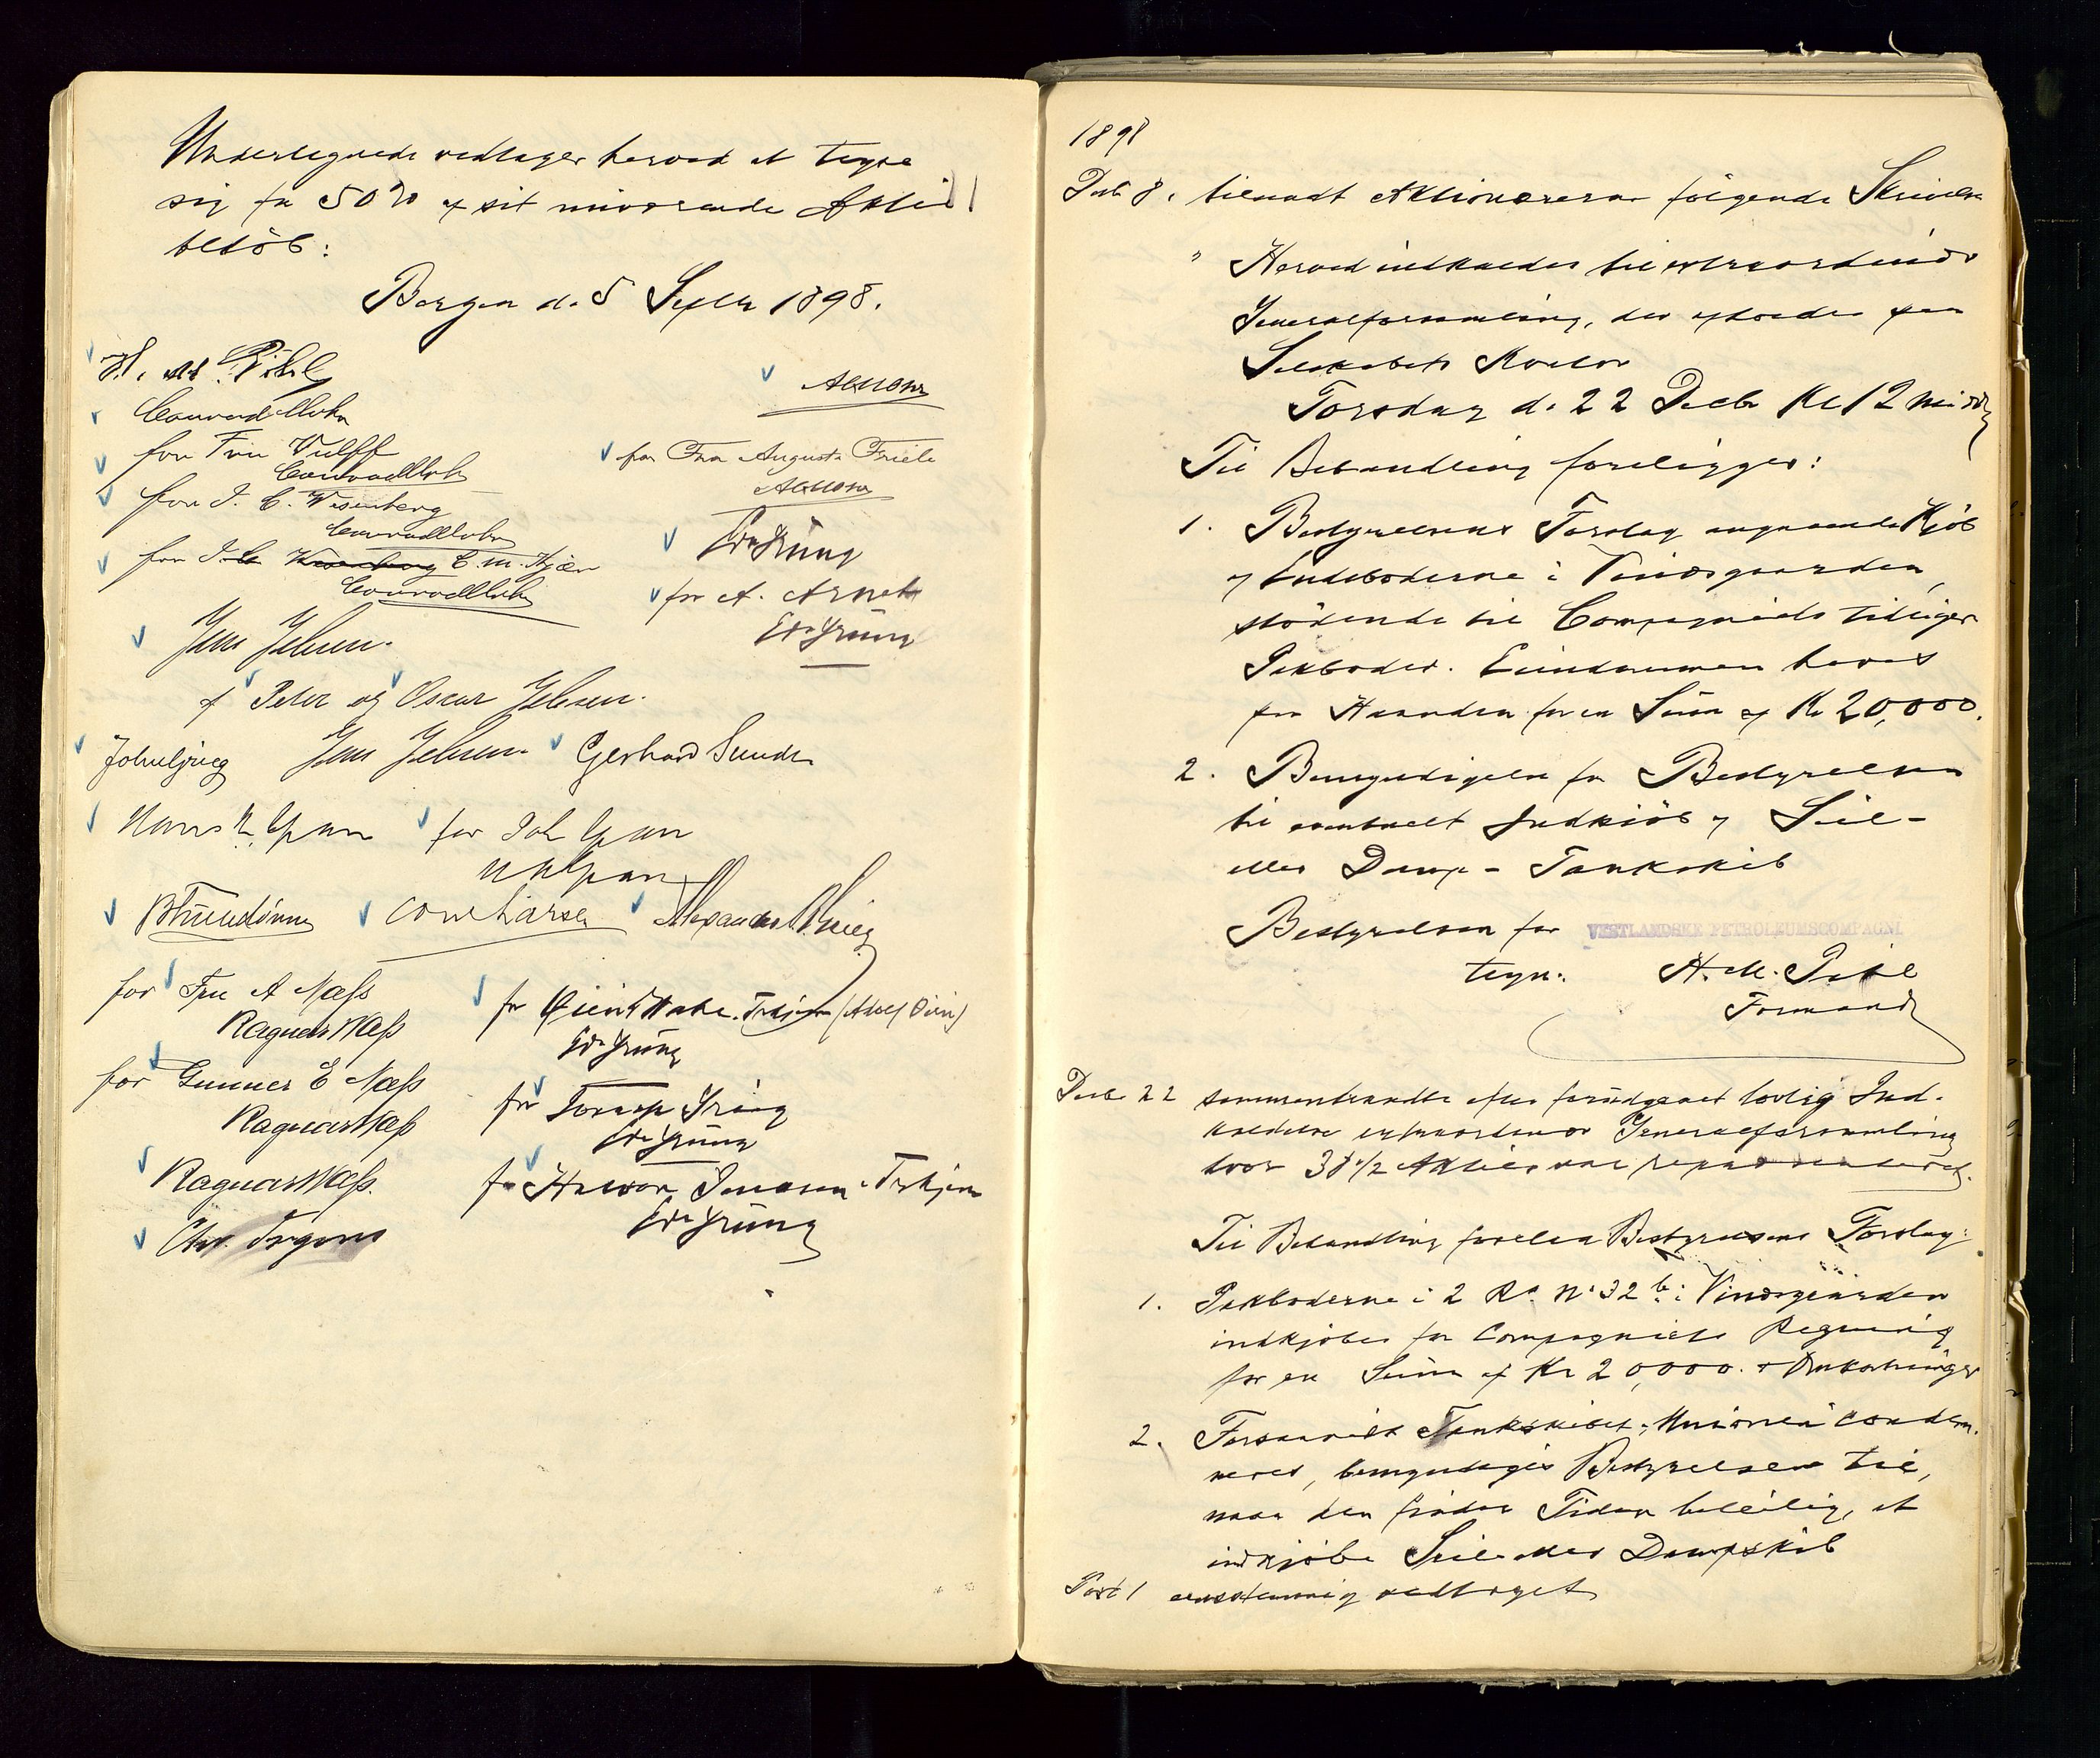 Undertegnede vedtager herved at tegne
sig for 50% af sit nuværende Aktie
beløb:
Bergen d. 5 Septbr 1898.
H. M. Pihl
Conrad Mohn
for Fru Wulff
Conrad Mohn
for J. C. Wesenberg
Conrad Mohn
for J. C. Wesenberg C. M. Kjær
Conrad Mohn
Jens Jebsen.
f Peter og Oscar Jebsen.
Jens Jebsen
Gerhard Sundt
for Fru Augusta Friele
Edv Grung
for A.
Edv Grung
for Joh
Conr Larsen
Alexander Grieg
for Fru A Næss
Ragnar Næss
for Gunner E Næss
Ragnar Næss
Ragnar Næss.
for
Edv Grung
for Grung
Edv Grung
for
Edv Grung
1898
Decb 8. tilsendt Aktionærerne følgende Skrivelse
" Herved indkaldes til extraordinær
Generalforsamling, der afholdes paa
Selskabets Kontor
Torsdag d. 22 Decbr Kl 12 midd
Til Behandling foreligger:
1. Bestyrelsens Forslag angaaende Kjøb
af Endeboderne i Vinörgaarden,
stødende til Compagniets tidligere
Pakboder. Eiendommen haves
paa Haanden for en Sum af Kr 20,000.
2. Bemyndigelse for Bestyrelsen
til eventuelt Indkjøb af Seil-
eller Damp- Tankskib
Bestyrelsen for VESTLANDSKE PETROLEUMSCOMPAGNI
tegn. H. M. Pihl
Formand
Decbr 22 sammentraadte efter forudgaaet lovlig Ind-
kaldelse extraordinær Generalforsamling
hvor 38 1/2 Aktier var repræsenteret.
Til Behandling forelaa Bestyrelsens Forslag:
1. Pakboderne i 2 Rd. No 32 b. i Vinörgaarden
indkjøbes for Compagniets Regning
for en Sum af Kr 20,000. + Omkostninger
2. Forsaavidt Tankskibet „Unionen" condem-
neres, bemyndiges Bestyrelsen til,
naar den finder Tiden beleilig, at
indkjøbe Seil- eller Dampskib
Post 1 eenstemmig vedtaget